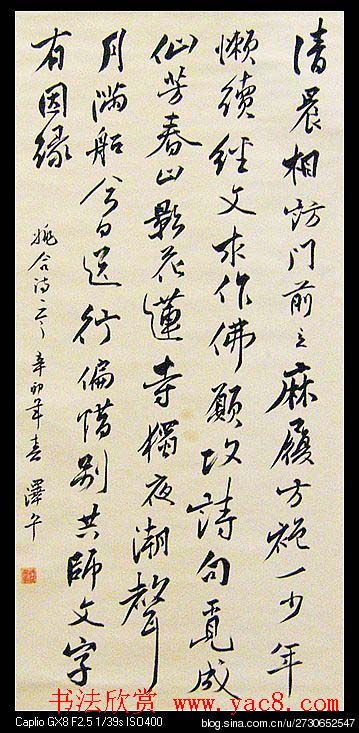 清晨相訪門前立麻履方袍一少年
懶續經文求作佛願攻詩句覓成
仙芳春山影花蓮寺獨夜潮聲
月滿船今日送行偏惜别共師文字
有因緣
姚合诗 辛卯年春 澤午
书法欣赏 www.yac8.com
Caplio GX8 F2.5 1/39s ISO400
blog.sina.com.cn/u/2730652547